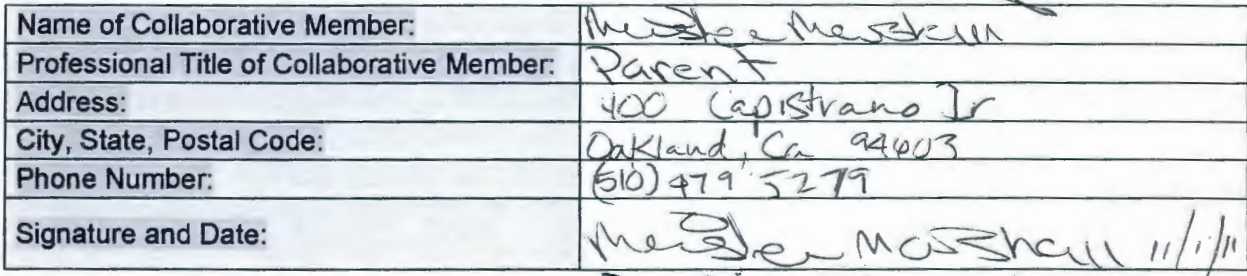 Name of Collaborative Member:
Professional Title of Collaborative Member: Parent
Address: 400 Capistrano Dr
City, State, Postal Code: Oakland, Ca 94603
Phone Number: (510) 479 5279
Signature and Date: Marshall 11/1/11